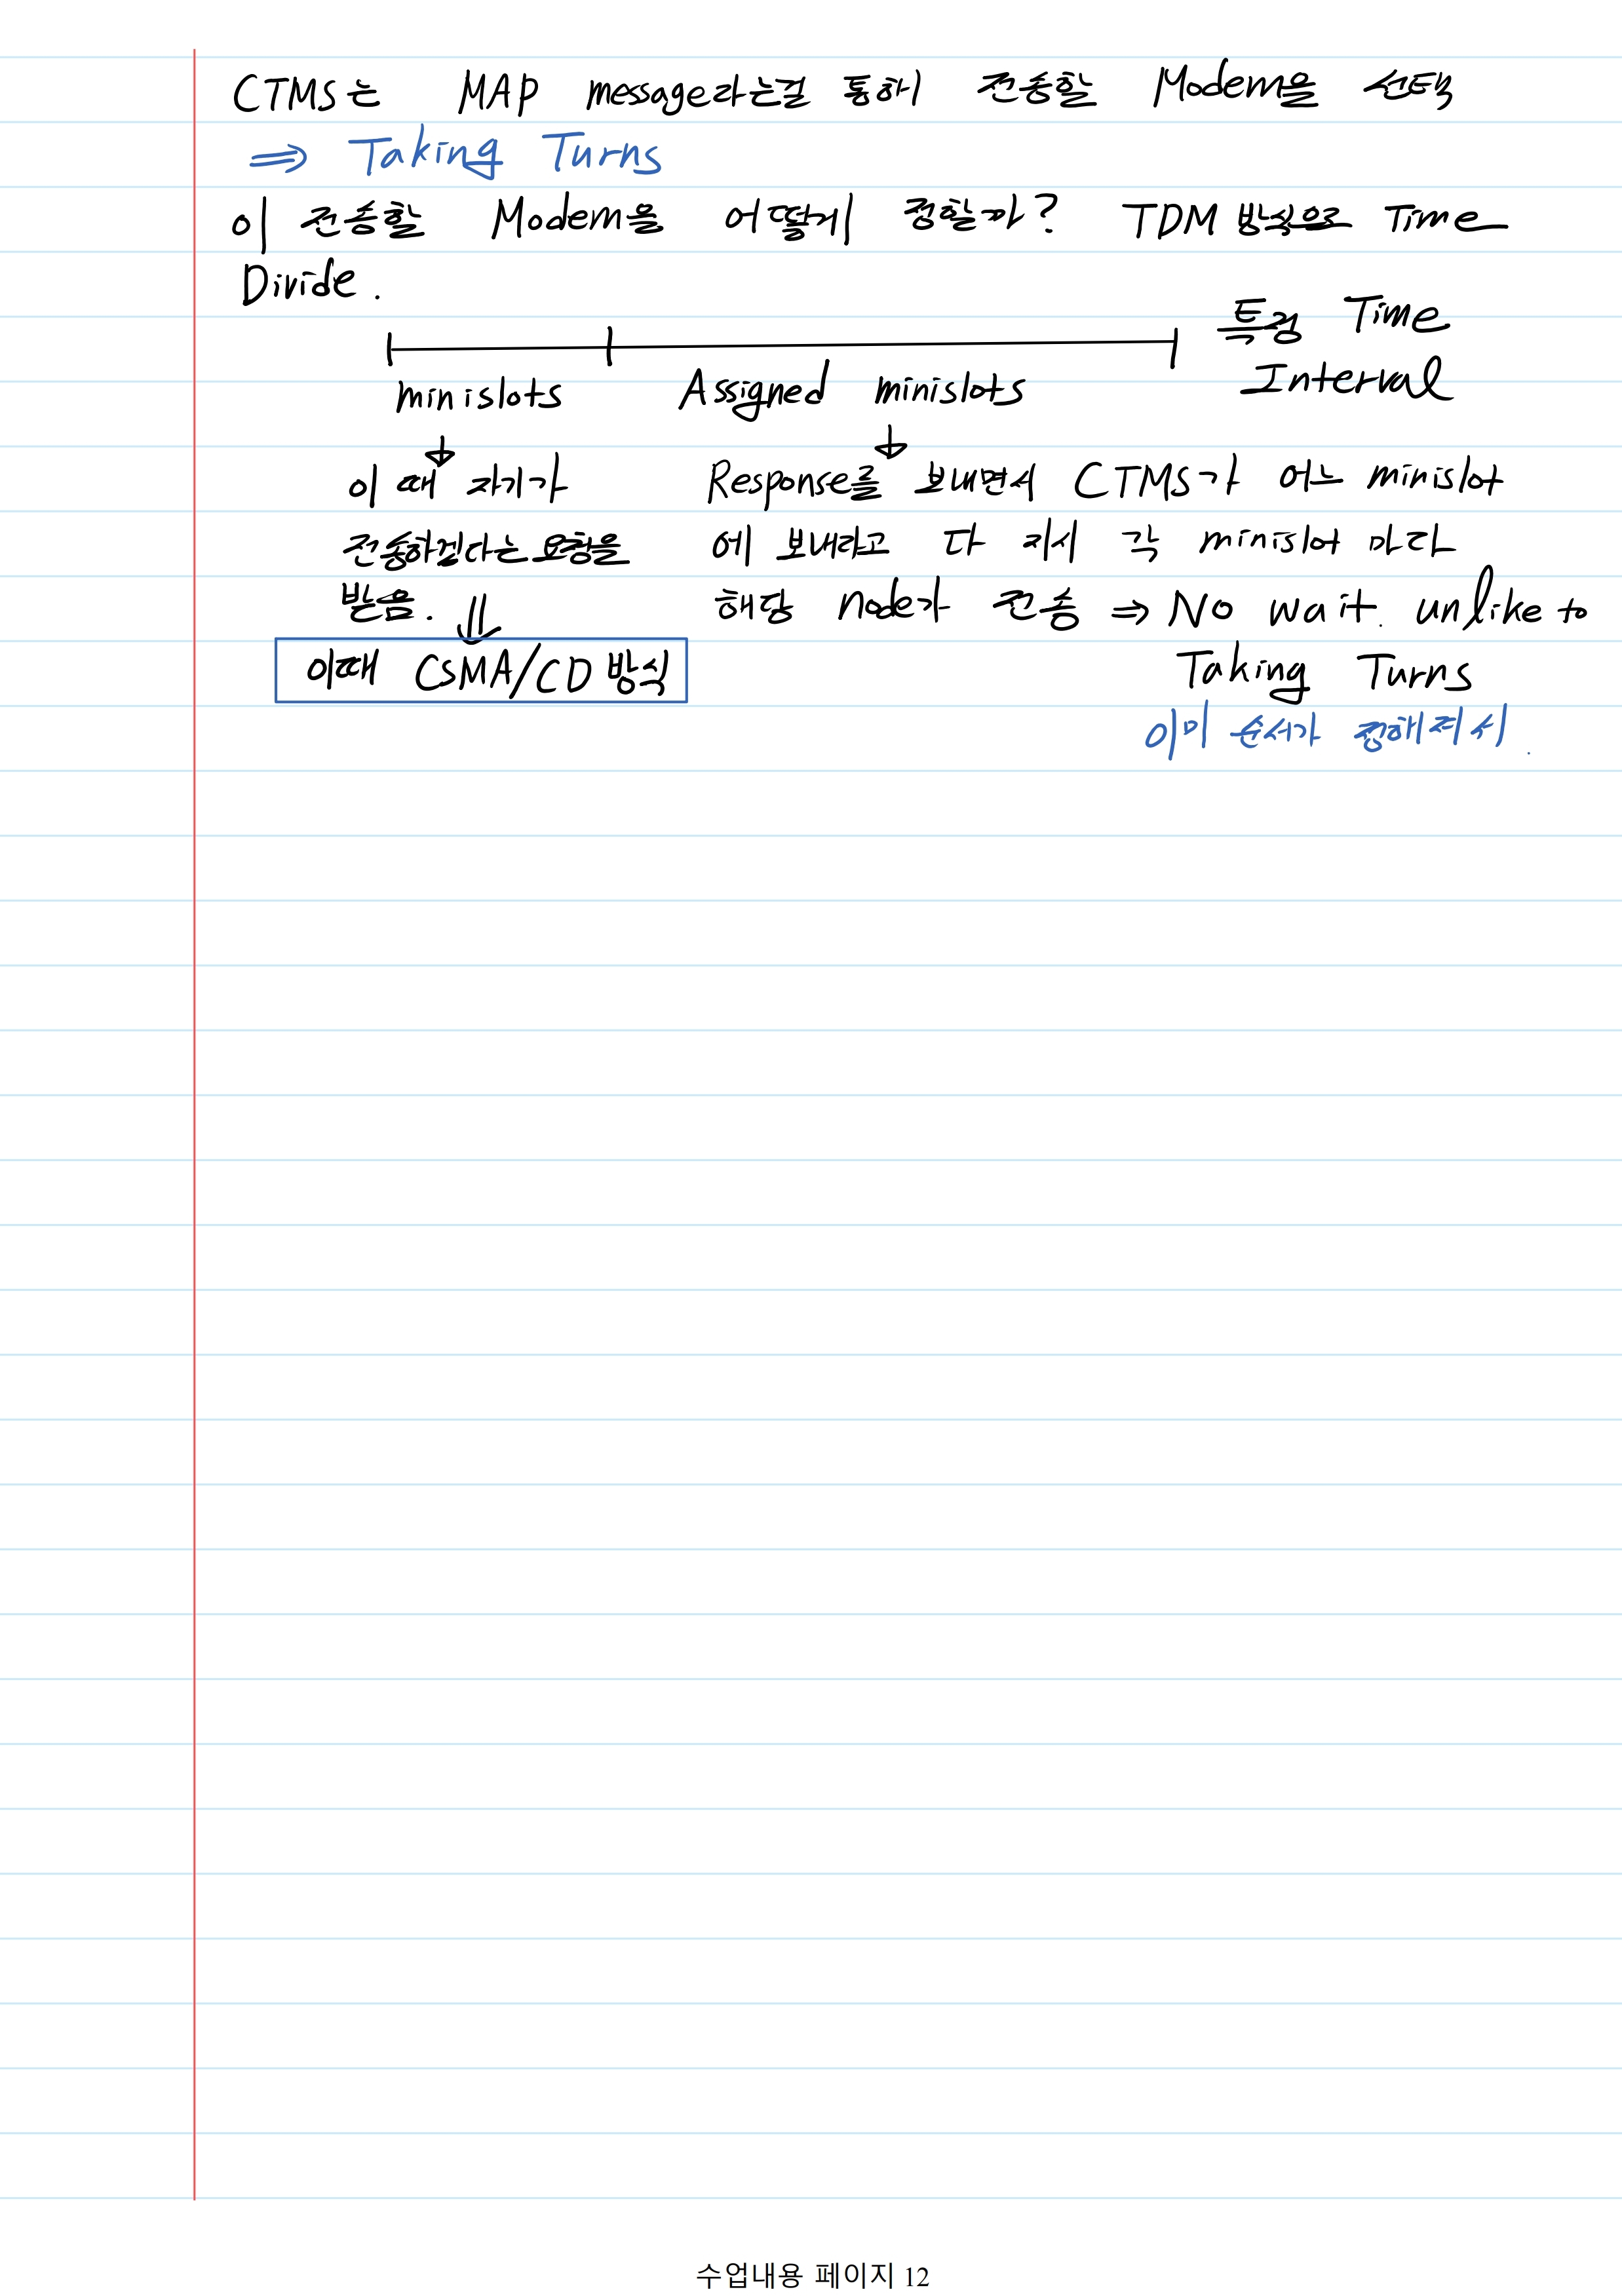 CTMS는 MAP message라는걸 통해 전송할 Modem을 선택
⇒ Taking Turns
이 전송할 Modem을 어떻게 정할까? TDM 방식으로 Time
Divide.
특정 Time
Interval
minislots Assigned minislots
이 때 자기가
전송하겠다는 요청을
받음.
이때 CSMA/CD 방식
Response를 보내면서 CTMS가 어느 minislot
에 보내라고 다 지시 각 minislot 마다
해당 node가 전송 ⇒ No wait. unlike to
Taking Turns
이미 순서가 정해져서.
수업내용 페이지 12